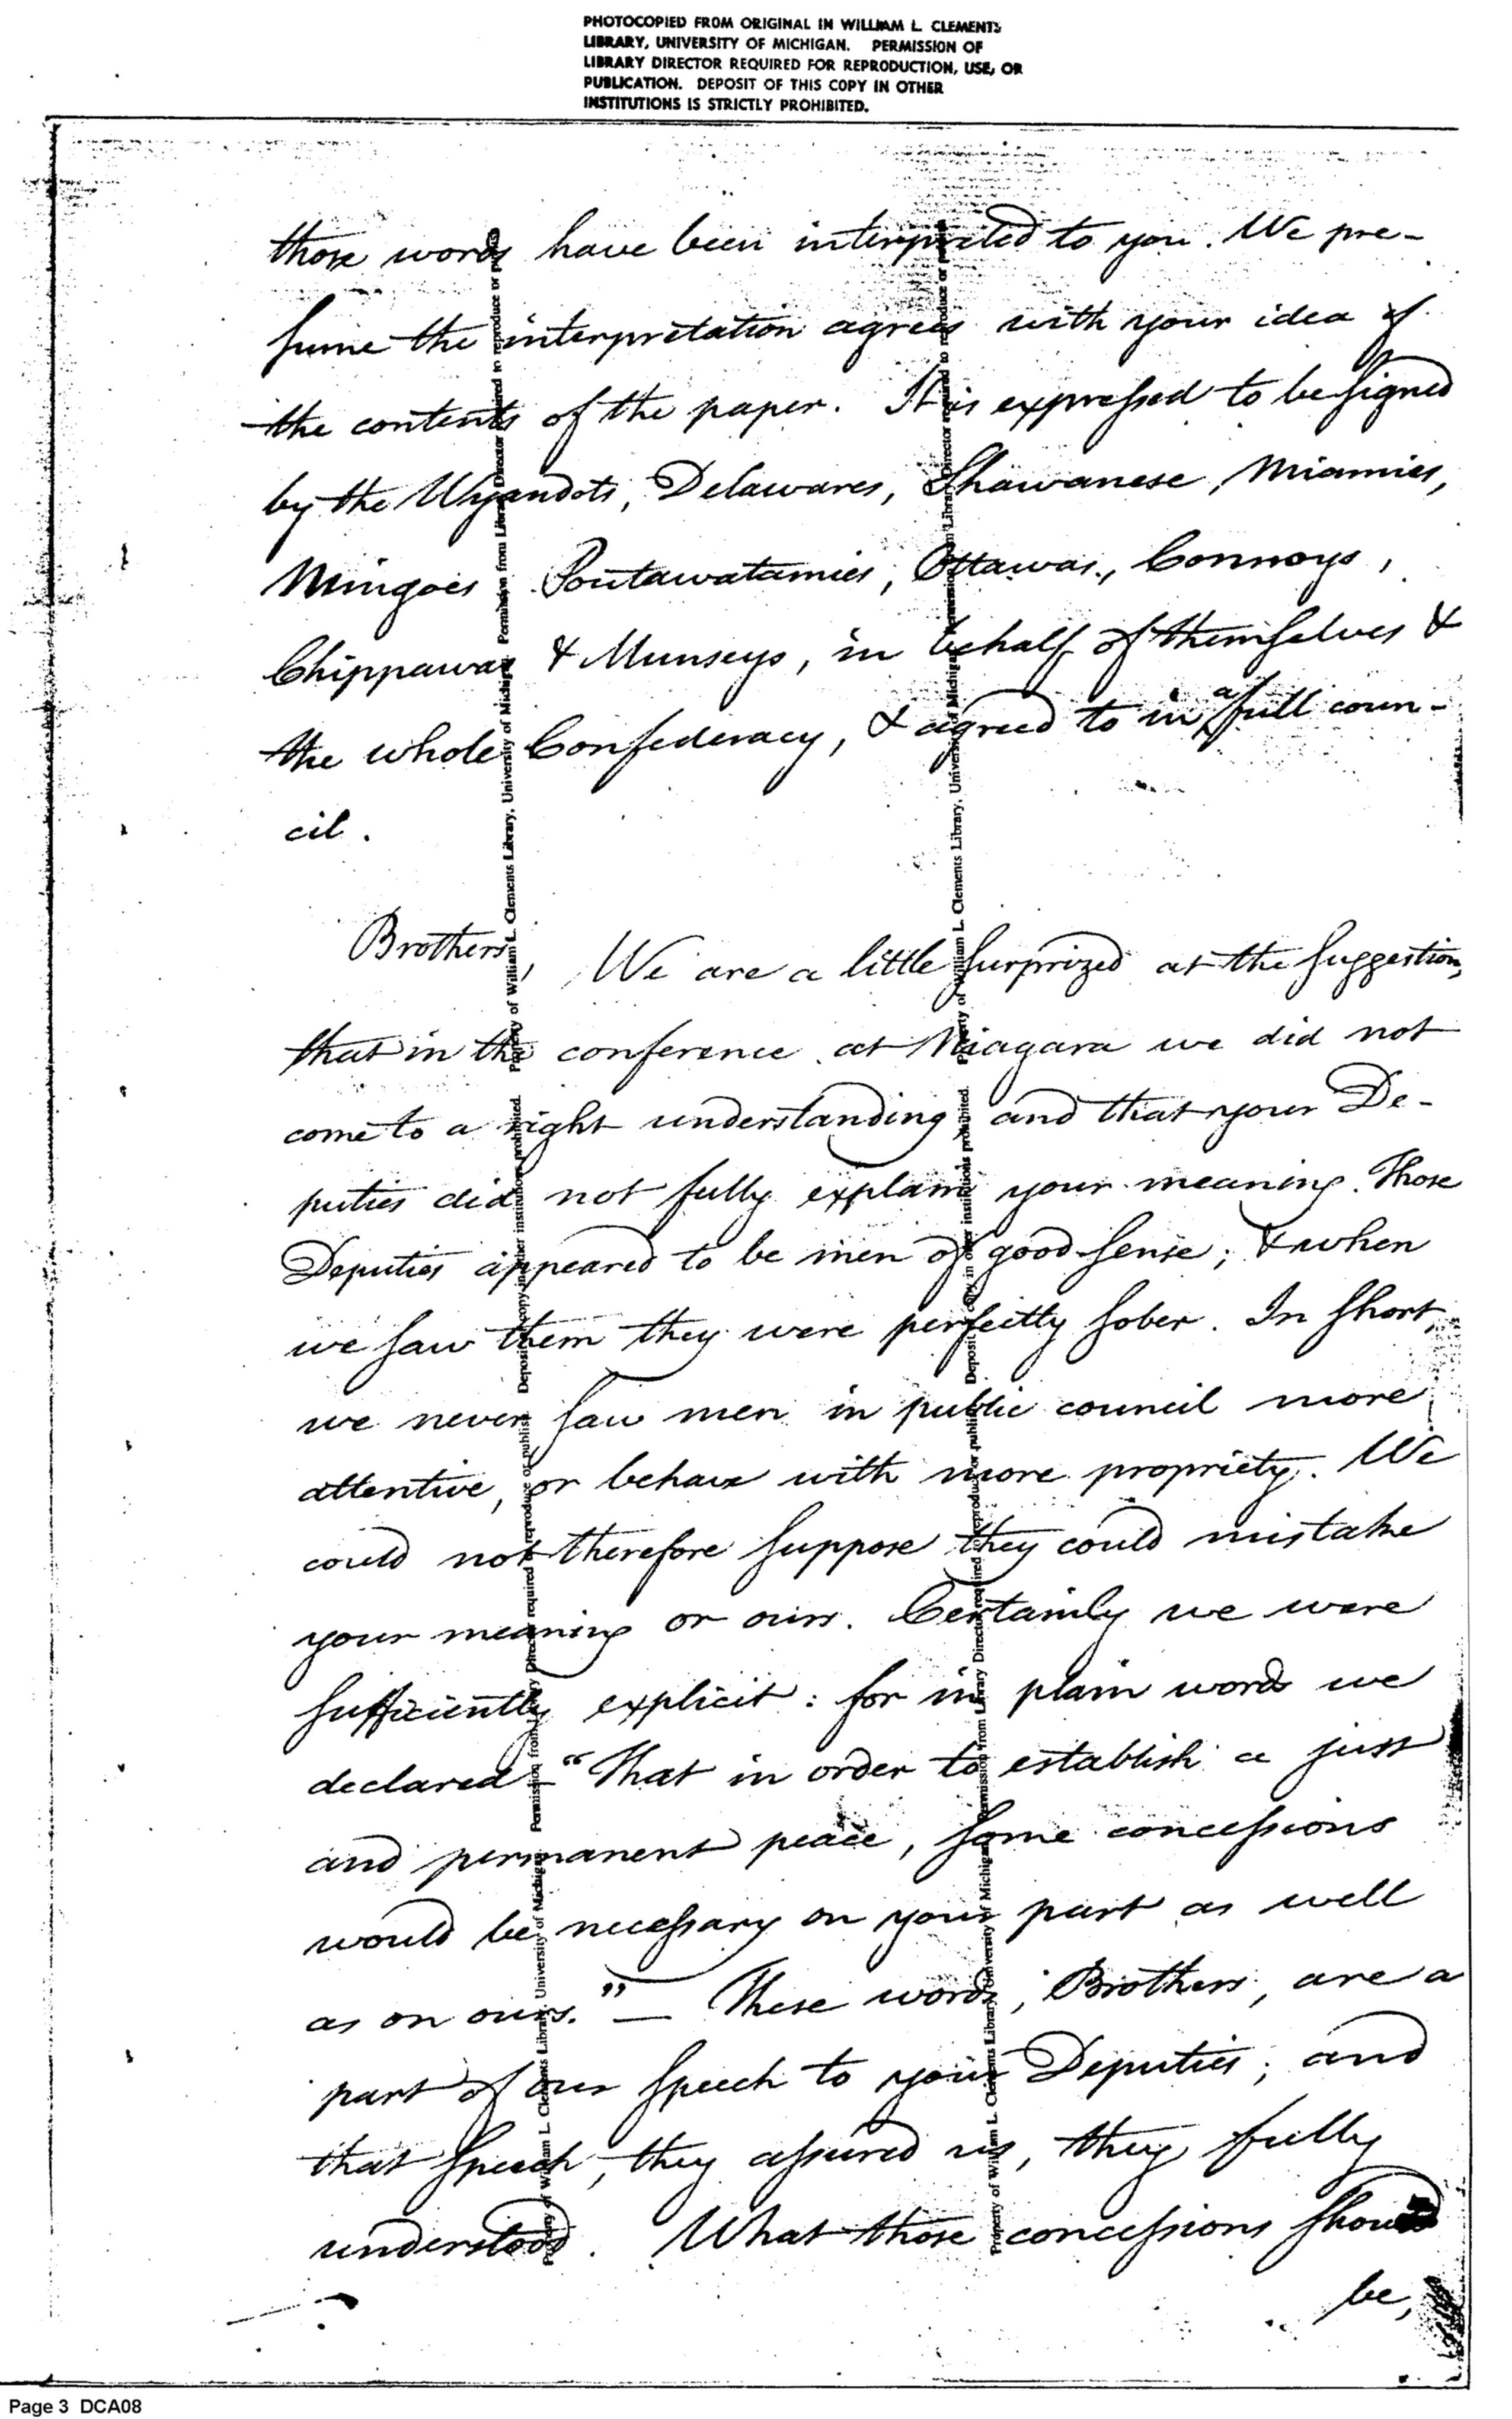 PHOTOCOPIED FROM ORIGINAL IN WILLIAM L. CLEMENTS
LIBRARY, UNIVERSITY OF MICHIGAN. PERMISSION OF
LIBRARY DIRECTOR REQUIRED FOR REPRODUCTION, USE, OR
PUBLICATION. DEPOSIT OF THIS COPY IN OTHER
INSTITUTIONS IS STRICTLY PROHIBITED.
those words have been interpreted to you. We pre-
sume the interpretation agrees with your idea of
the contents of the paper. It is expressed to be signed
by the Wyandots, Delawares, Shawanese, Miamies,
Mingoes Poutawatamies, Ottawas, Connoys,
Chippawas & Munseys, in behalf of themselves &
the whole Confederacy, & agreed to in a full coun-
cil.
Brothers, We are a little surprized at the suggestion,
that in the conference at Niagara we did not
come to a right understanding and that your De-
puties did not fully explain your meaning. Those
Deputies appeared to be men of good sense; & when
we saw them they were perfectly sober. In short,
we never saw men in public council more
attentive, or behave with more propriety. We
could not therefore suppose they could mistake
your meaning or ours. Certainly we were
sufficiently explicit: for in plain words we
declared - "That in order to establish a just
and permanent peace, some concessions
would be necessary on your part as well
as on ours." — These words, Brothers, are a
part of our speech to your Deputies; and
that speech, they assured us, they fully
understood. What those concessions should
be,
Property of William L. Clements Library, University of Michigan. Permission from Library Director required to reproduce or publish
Property of William L. Clements Library, University of Michigan. Permission from Library Director required to reproduce or publish
Property of William L. Clements Library, University of Michigan. Permission from Library Director required to reproduce or publish. Deposit of copy in other institutions prohibited.
Property of William L. Clements Library, University of Michigan. Permission from Library Director required to reproduce or publish. Deposit of copy in other institutions prohibited.
Page 3 DCA08